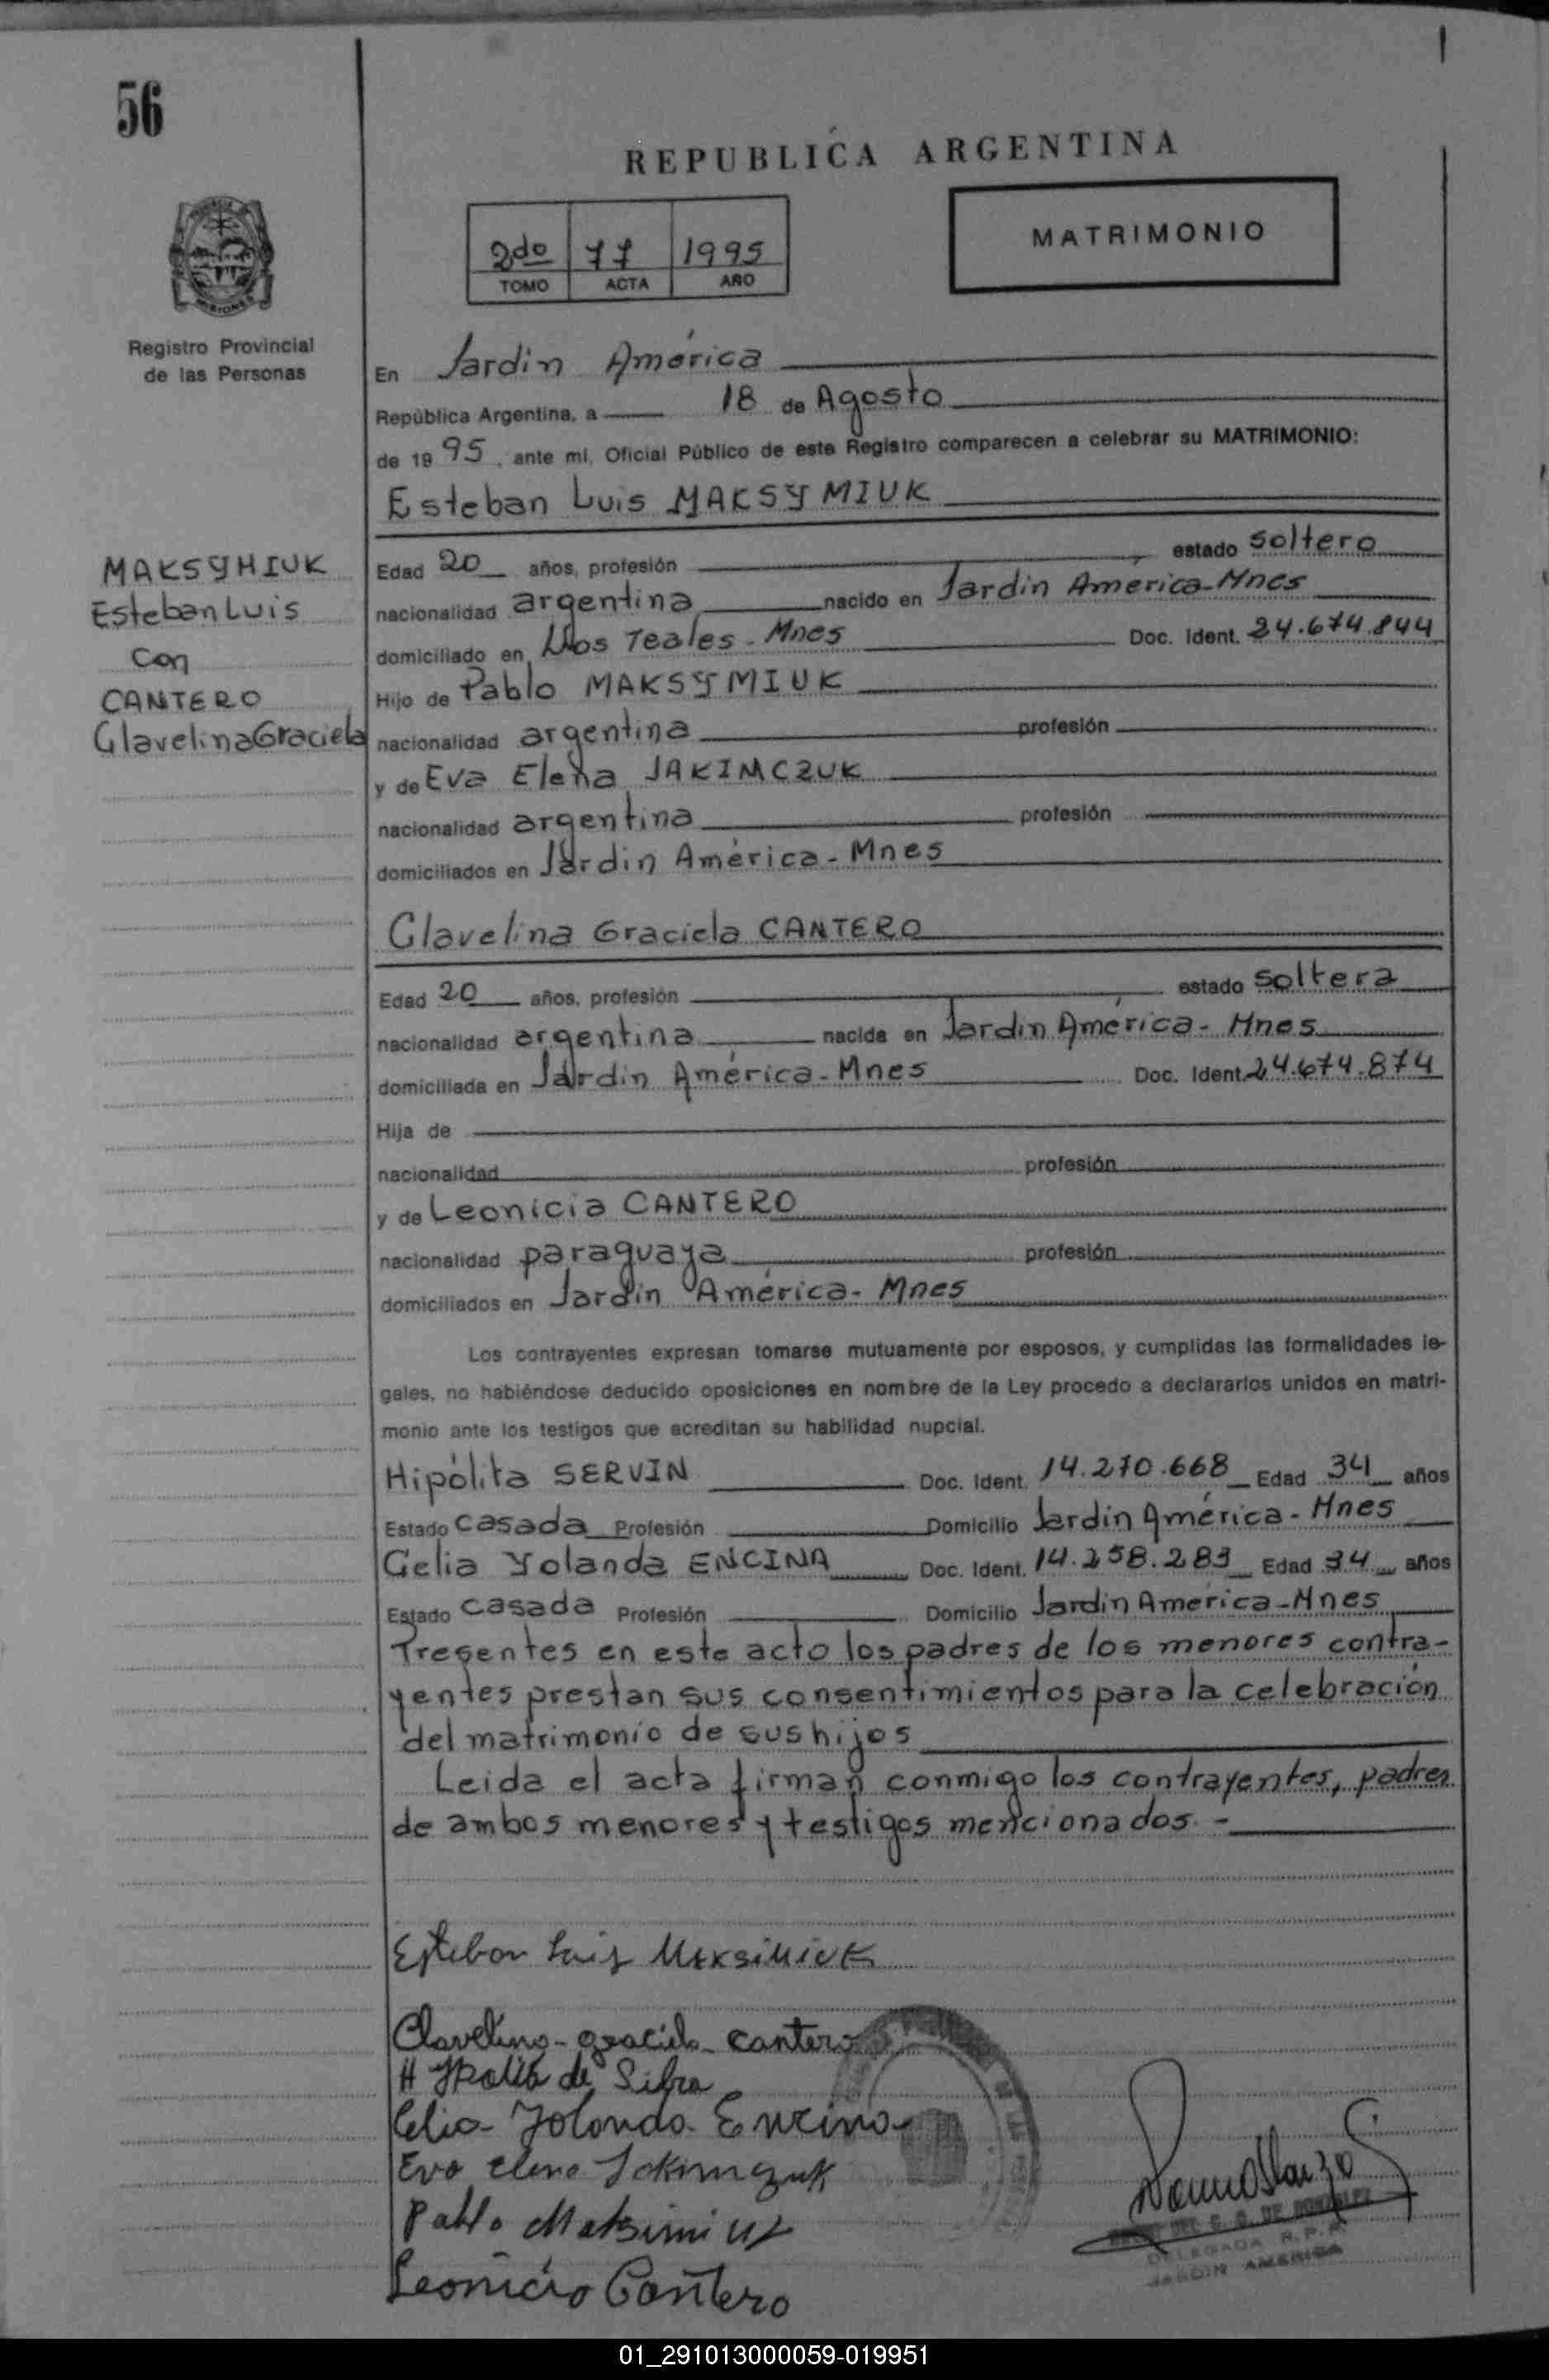 56
REPUBLICA ARGENTINA
2do 77 1995
TOMO ACTA AÑO
MATRIMONIO
MISIONES
Registro Provincial
de las Personas
En Jardín América
República Argentina, a 18 de Agosto
de 1995, ante mí, Oficial Público de este Registro comparecen a celebrar su MATRIMONIO:
Esteban Luis MAKSYMIUK
MAKSYMIUK
Esteban Luis
con
CANTERO
Clavelina Graciela
Edad 20 años, profesión estado soltero
nacionalidad argentina nacido en Jardín América-Mnes
domiciliado en Los Teales - Mnes Doc. Ident. 24.674.844
Hijo de Pablo MAKSYMIUK
nacionalidad argentina profesión
y de Eva Elena JAKIMCZUK
nacionalidad argentina profesión
domiciliados en Jardín América - Mnes
Clavelina Graciela CANTERO
Edad 20 años, profesión estado soltera
nacionalidad argentina nacida en Jardín América - Mnes
domiciliada en Jardín América - Mnes Doc. Ident. 24.674.874
Hija de
nacionalidad profesión
y de Leonicia CANTERO
nacionalidad paraguaya profesión
domiciliados en Jardín América - Mnes
Los contrayentes expresan tomarse mutuamente por esposos, y cumplidas las formalidades le-
gales, no habiéndose deducido oposiciones en nombre de la Ley procedo a declararlos unidos en matri-
monio ante los testigos que acreditan su habilidad nupcial.
Hipólita SERVIN Doc. Ident. 14.270.668 Edad 34 años
Estado casada Profesión Domicilio Jardín América - Mnes
Celia Yolanda ENCINA Doc. Ident. 14.258.283 Edad 34 años
Estado casada Profesión Domicilio Jardín América - Mnes
Presentes en este acto los padres de los menores contra-
yentes prestan sus consentimientos para la celebración
del matrimonio de sus hijos
Leida el acta firman conmigo los contrayentes, padres
de ambos menores y testigos mencionados. -
Esteban Luis Maksimiuk
Clavelina - graciela - cantero
de Silva
Celia Yolanda Encina
Eva Elena Jakimczuk
Pablo Maksimiuk
Leonicia Cantero
DELEGADA R.P.P.
JARDIN AMERICA
01_291013000059-019951